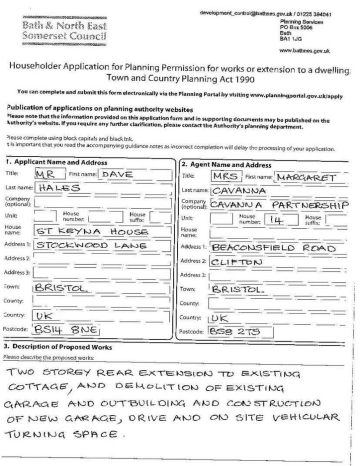 development_control@bathnes.gov.uk / 01225 394041
Bath & North East
Somerset Council
Planning Services
PO Box 5006
Bath
BA1 1JG
www.bathnes.gov.uk
Householder Application for Planning Permission for works or extension to a dwelling.
Town and Country Planning Act 1990
You can complete and submit this form electronically via the Planning Portal by visiting www.planningportal.gov.uk/apply
Publication of applications on planning authority websites
Please note that the information provided on this application form and in supporting documents may be published on the
Authority's website. If you require any further clarification, please contact the Authority's planning department.
Please complete using block capitals and black ink.
It is important that you read the accompanying guidance notes as incorrect completion will delay the processing of your application.
1. Applicant Name and Address
Title: MR First name: DAVE
Last name: HALES
Company
(optional):
Unit: House
number: House
suffix:
House
name: ST KEYNA HOUSE
Address 1: STOCKWOOD LANE
Address 2:
Address 3:
Town: BRISTOL
County:
Country: UK
Postcode: BS14 8NE
2. Agent Name and Address
Title: MRS First name: MARGARET
Last name: CAVANNA
Company
(optional): CAVANNA PARTNERSHIP
Unit: House
number: 14 House
suffix:
House
name:
Address 1: BEACONSFIELD ROAD
Address 2: CLIFTON
Address 3:
Town: BRISTOL
County:
Country: UK
Postcode: BS8 2TS
3. Description of Proposed Works
Please describe the proposed works:
TWO STOREY REAR EXTENSION TO EXISTING
COTTAGE, AND DEMOLITION OF EXISTING
GARAGE AND OUTBUILDING AND CONSTRUCTION
OF NEW GARAGE, DRIVE AND ON SITE VEHICULAR
TURNING SPACE.